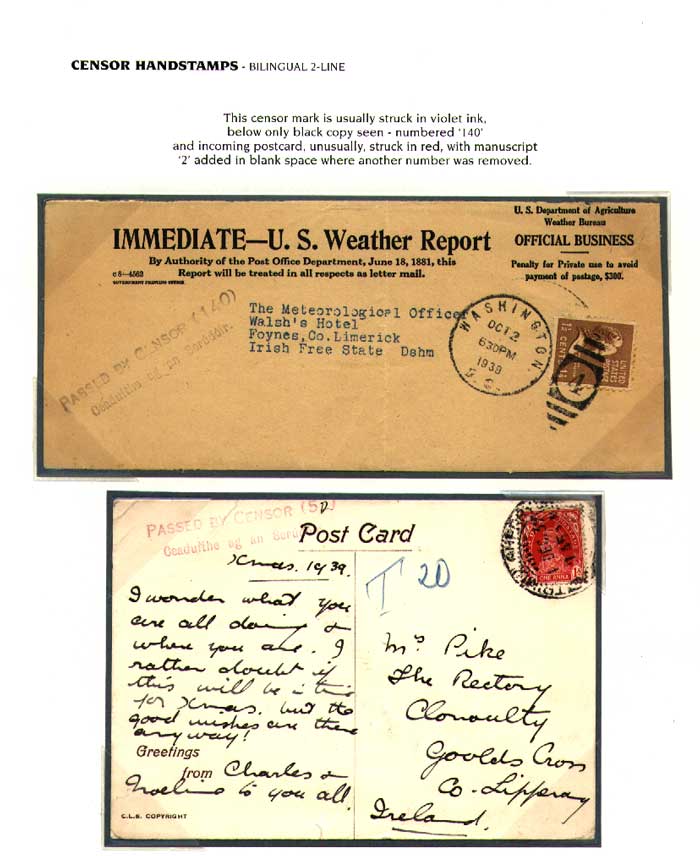 CENSOR HANDSTAMPS - BILINGUAL 2-LINE
This censor mark is usually struck in violet ink,
below only black copy seen - numbered '140'
and incoming postcard, unusually, struck in red, with manuscript
'2' added in blank space where another number was removed.
U. S. Department of Agriculture
Weather Bureau
OFFICIAL BUSINESS
Penalty for Private use to avoid
payment of postage, $300.
IMMEDIATE—U. S. Weather Report
By Authority of the Post Office Department, June 18, 1881, this
Report will be treated in all respects as letter mail.
c 8—4563
GOVERNMENT PRINTING OFFICE
The Meteorological Officer
Walsh's Hotel
Foynes, Co.Limerick
Irish Free State Dshm
PASSED BY CENSOR (140)
Ceaduithe ag an Scrúdóir.
WASHINGTON,
OCT 2
630PM
1939
D. C.
UNITED
STATES
POSTAGE
1½ CENTS 1½
PASSED BY CENSOR (52)
Ceaduithe ag an
Post Card
Xmas. 1939.
T 20
ONE ANNA
I wonder what you
are all doing &
where you are. I
rather doubt if
this will be in time
for Xmas. but the
good wishes are there
anyway!
Greetings
from Charles &
to you all.
C.L.S. COPYRIGHT
Mrs Pike
The Rectory
Clonoulty
Goolds Cross
Co. Tipperary
Ireland.